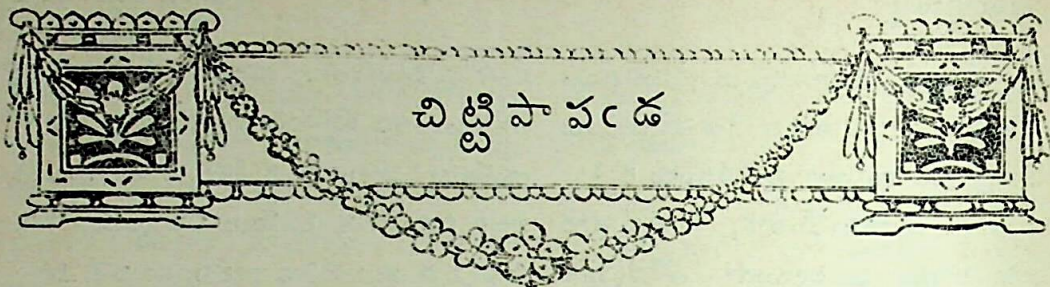 చిట్టి పాపఁడ